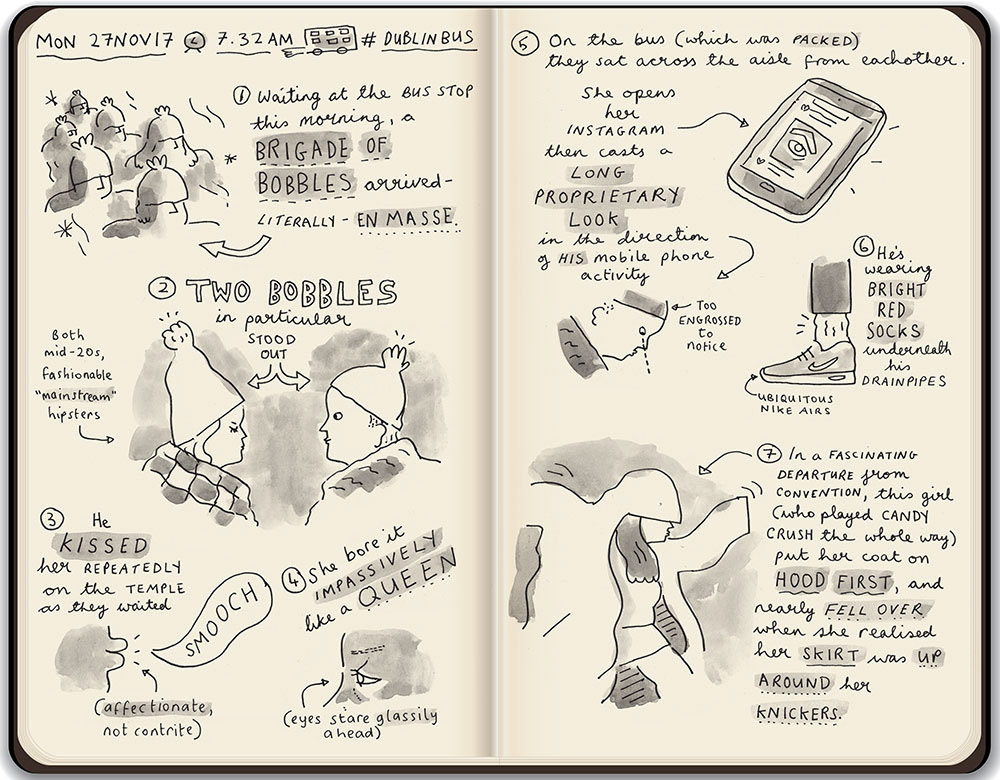 MON 27NOV17 @ 7.32AM # DUBLINBUS
① Waiting at the BUS STOP
this morning, a
BRIGADE OF
BOBBLES arrived-
LITERALLY - EN MASSE.
② TWO BOBBLES
in particular
STOOD
OUT
Both
mid-20s,
fashionable
"mainstream"
hipsters
③ He
KISSED
her REPEATEDLY
on the TEMPLE
as they waited
SMOOCH
(affectionate,
not contrite)
④ She bore it
IMPASSIVELY
like a QUEEN
(eyes stare glassily
ahead)
⑤ On the bus (which was PACKED)
they sat across the aisle from eachother.
She opens
her
INSTAGRAM
then casts a
LONG
PROPRIETARY
LOOK
in the direction
of HIS mobile phone
activity
TOO
ENGROSSED
to
notice
⑥ He's
wearing
BRIGHT
RED
SOCKS
underneath
his
DRAINPIPES
UBIQUITOUS
NIKE AIRS
⑦ In a FASCINATING
DEPARTURE from
CONVENTION, this girl
(who played CANDY
CRUSH the whole way)
put her coat on
HOOD FIRST, and
nearly FELL OVER
when she realised
her SKIRT was UP
AROUND her
KNICKERS.